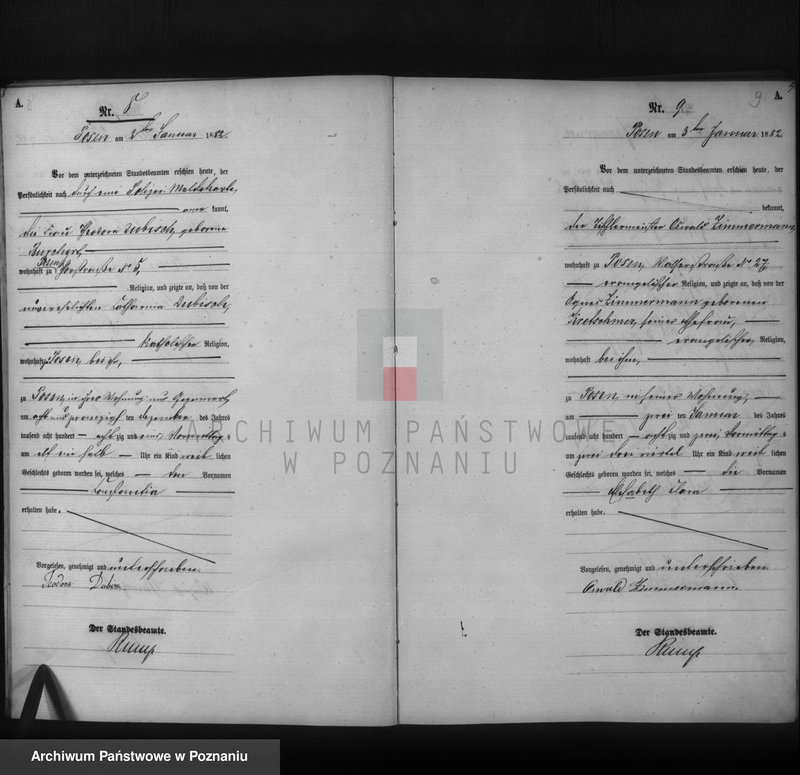 A.
8
Nr. 8
Posen am 2ten Januar 1882.
Vor dem unterzeichneten Standesbeamten erschien heute, der
Persönlichkeit nach durch eine Polizei Meldekarte,
kannt,
die Frau Theodora Dubisch, geborene
wohnhaft zu Posen,
Religion, und zeigte an, daß von der
unverehelichten Catharina Dubisch,
katholischer Religion,
wohnhaft Posen, bei ihr,
zu Posen, in ihrer Wohnung in Gegenwart
am acht und zwanzigsten Dezember des Jahres
tausend acht hundert achtzig und eins Vormittag s
um elf ein halb Uhr ein Kind weib lichen
Geschlechts geboren worden sei, welches den Vornamen
erhalten habe.
Vorgelesen, genehmigt und unterschrieben.
Teodora
Der Standesbeamte.
Rump
9
9
A.
Nr. 9.
Posen am 3ten Januar 1882.
Vor dem unterzeichneten Standesbeamten erschien heute, der
Persönlichkeit nach
bekannt,
der Tischlermeister Oswald Zimmermann,
wohnhaft zu Posen, Wasserstraße No 27,
evangelischer Religion, und zeigte an, daß von der
Agnes Zimmermann geborenen
Kretschmer, seiner Ehefrau,
evangelischer Religion,
wohnhaft bei ihm,
zu Posen in seiner Wohnung,
am zwei ten Januar des Jahres
tausend acht hundert achtzig und zwei Vormittag s
um zwei drei viertel Uhr ein Kind weib lichen
Geschlechts geboren worden sei, welches die Vornamen
Elisabeth Clara
erhalten habe.
Vorgelesen, genehmigt und unterschrieben
Oswald Zimmermann.
Der Standesbeamte.
Rump
ARCHIWUM PAŃSTWOWE
W POZNANIU
Archiwum Państwowe w Poznaniu